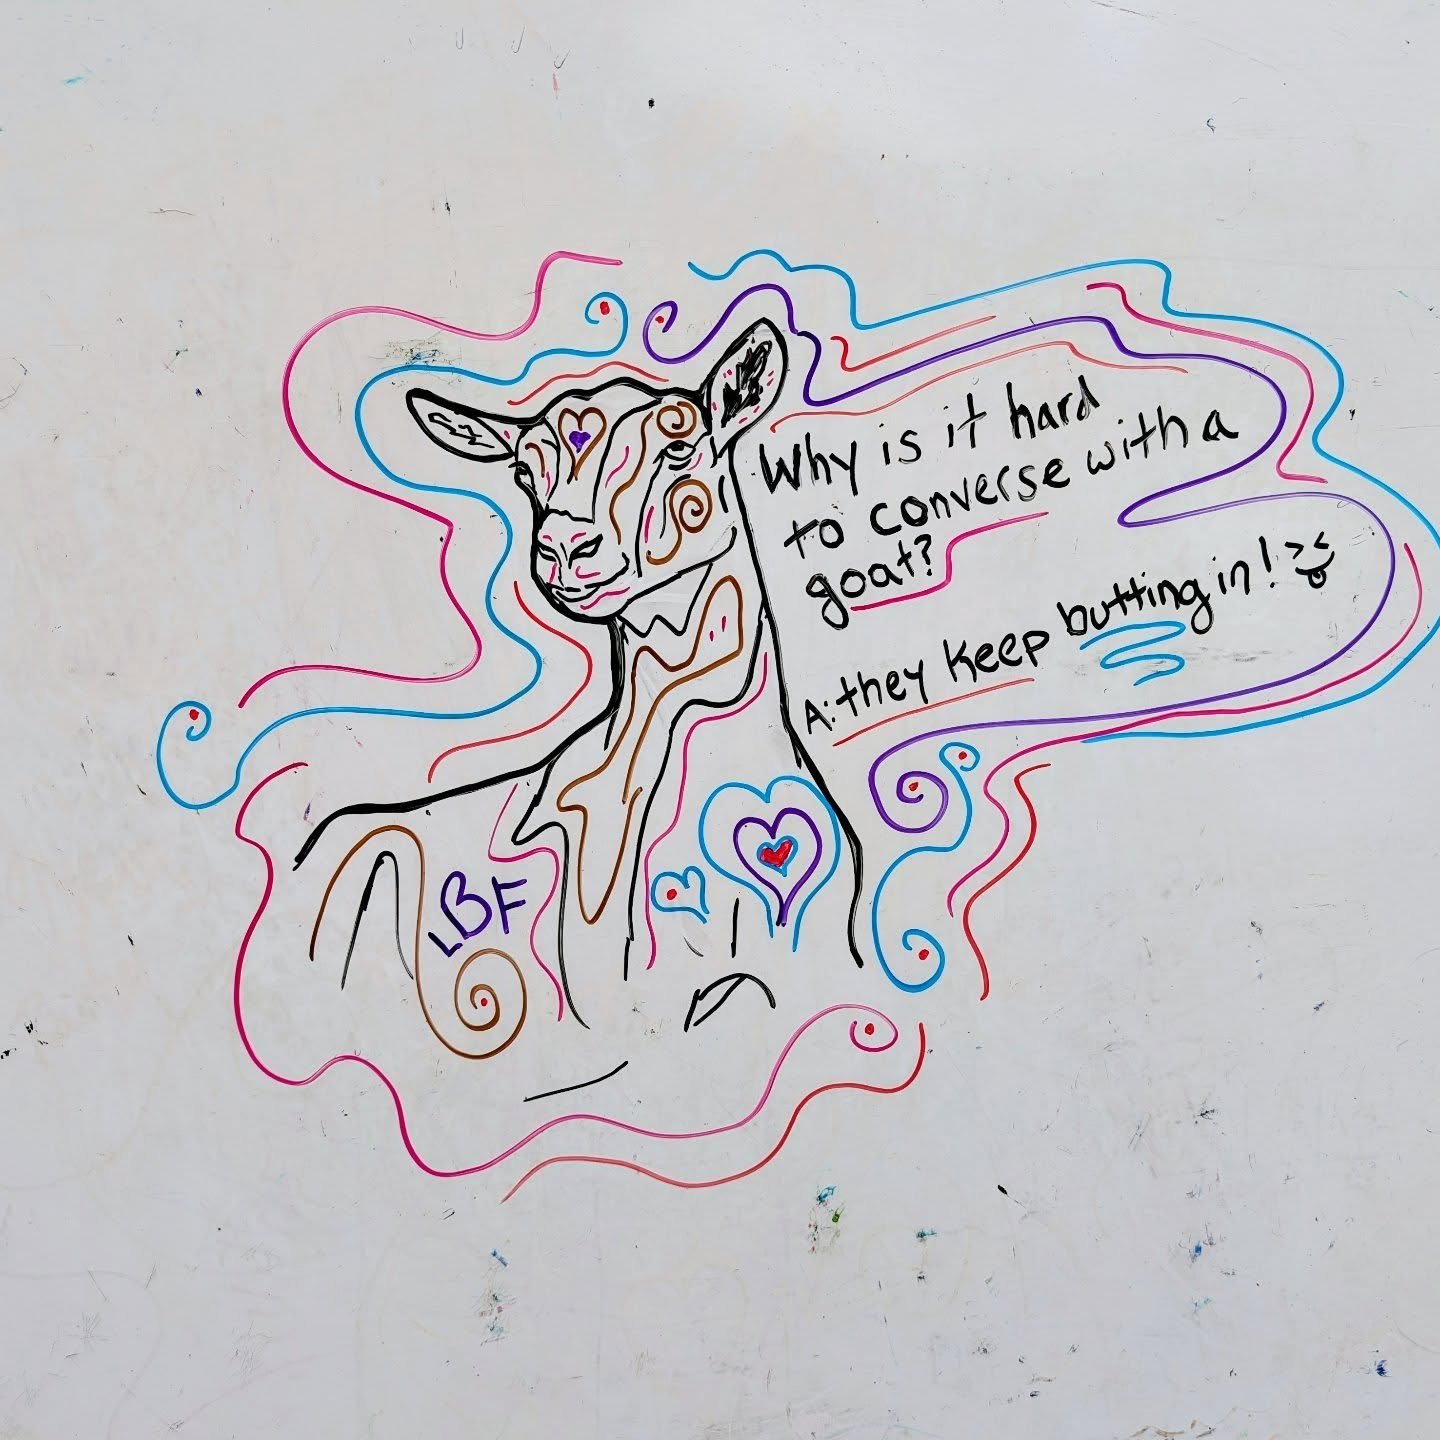 Why is it hard
to converse with a
goat?
A: they keep butting in!
LBF